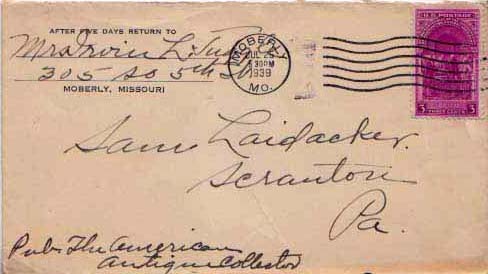 AFTER FIVE DAYS RETURN TO
Mrs Irvin L.
305 So 5th St
MOBERLY, MISSOURI
MOBERLY
30PM
1939
MO.
U.S. POSTAGE
3 3
Sam Laidacker.
Scranton
Pa.
Pub. The American
Antique Collector